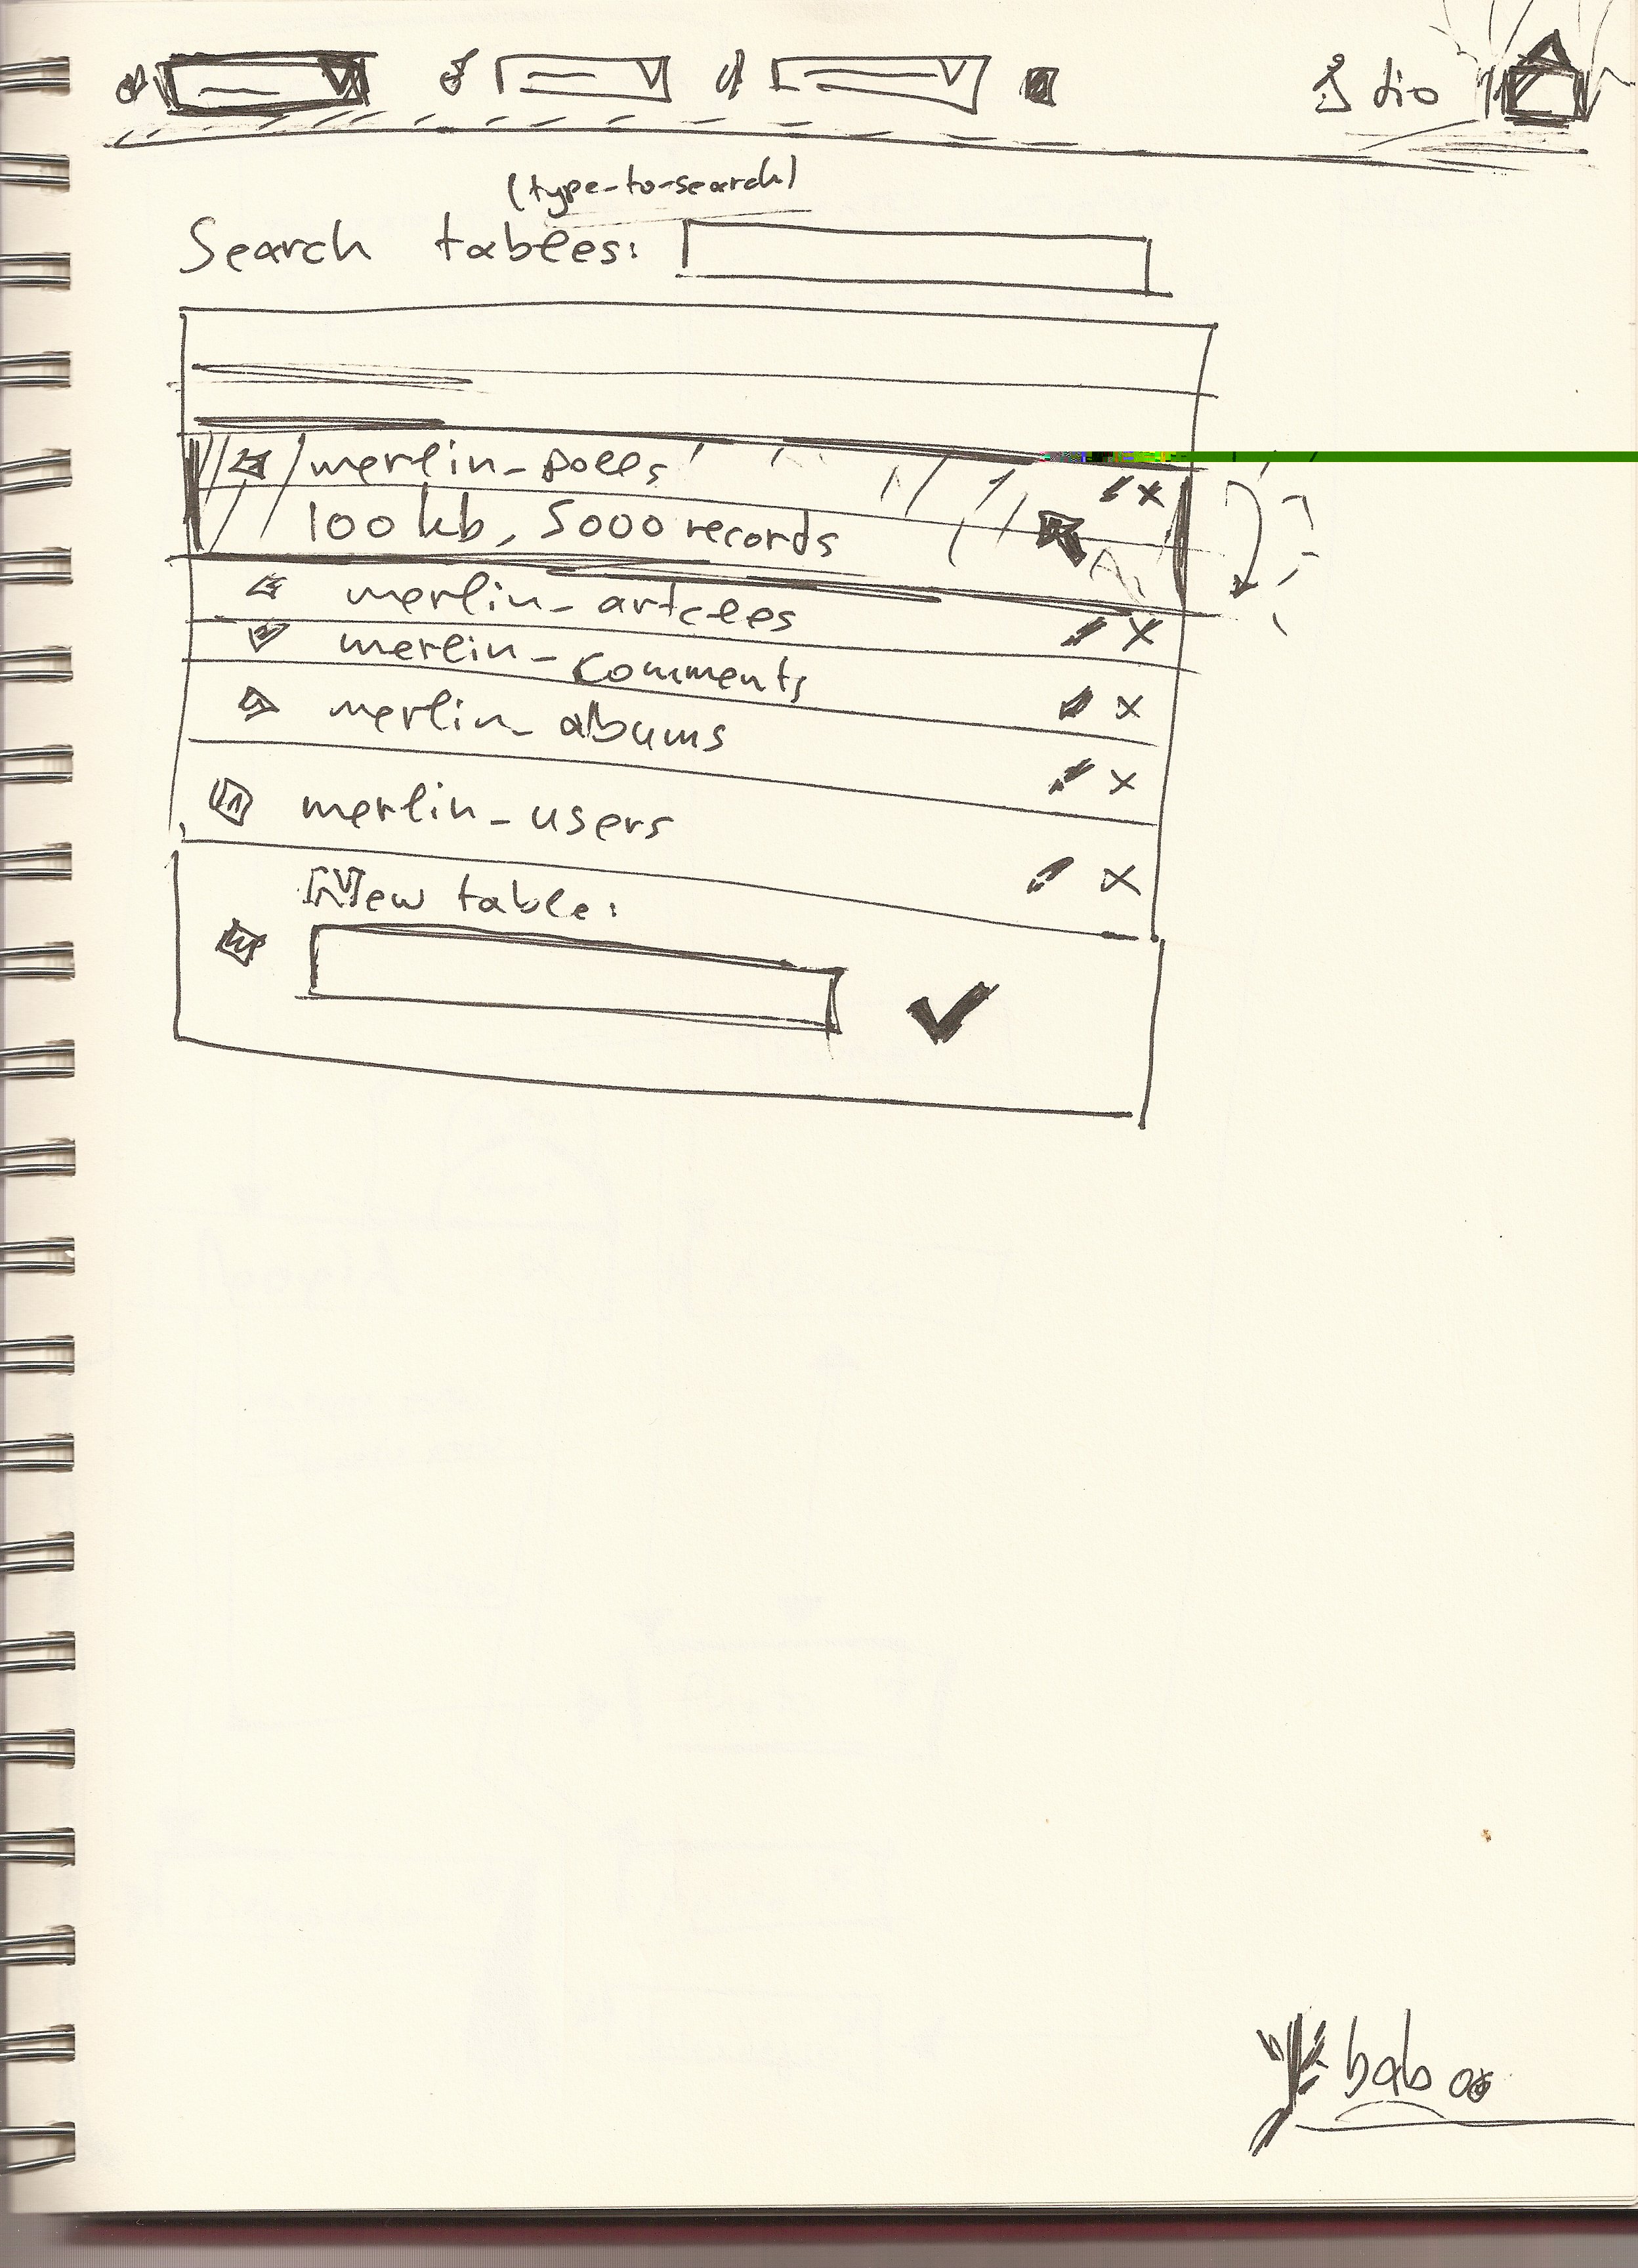 dio
(type-to-search)
Search tables:
merlin_polls
100 kb, 5000 records
merlin_artcles
merlin_comments
merlin_albums
merlin_users
New table: